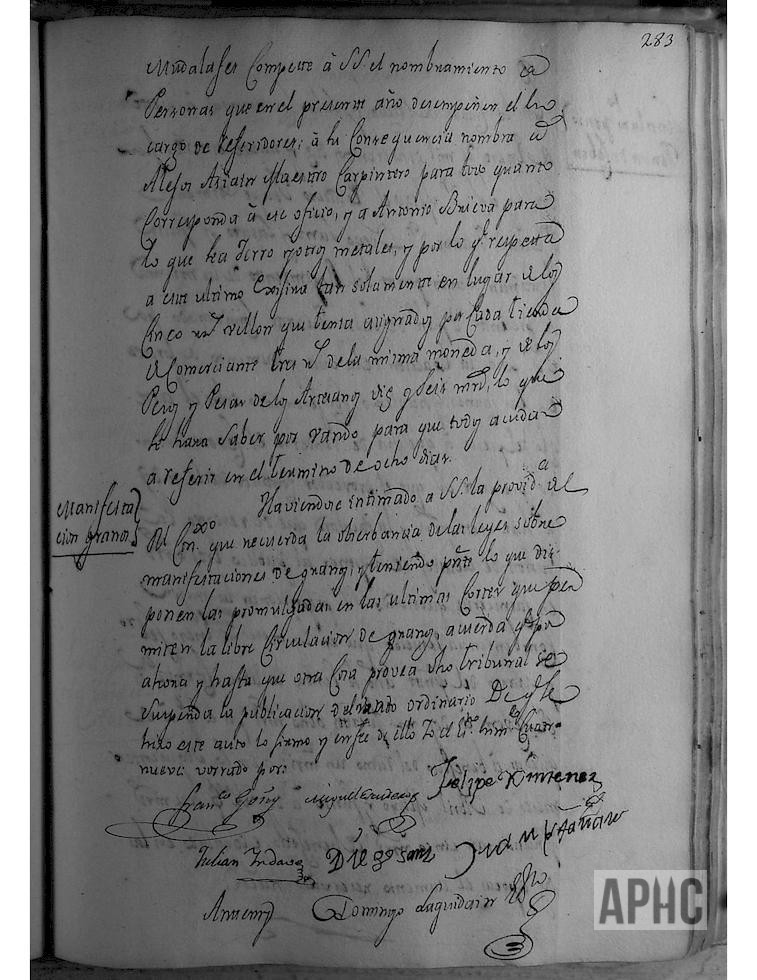 283
Mudalafes Compette â SS. el nombramiento ca
Personas que en el presente año desempeñen el
cargo de referidores; â su Consequencia nombra â
Alejos Asiain Maestro Carpintero para todo quanto
Corresponda â ese oficio, y a Antonio Brieva para
lo que sea Ierro y otros metales, y por lo q.e respecta
a este ultimo Exsiva tan solamente en lugar de los
Cinco r.s vellon que tenia asignados por Cada tienda
de Comerciante tres r.s de la misma moneda, y de los
Pesos y Pesas de los Artesanos diez y seis mrs, lo que
se hara Saber por Vando para que todos acudan
a referir en el termino de ocho dias.
Manifesta
cion granos
Haviendose intimado a SS. la provid.a del
Rl Con. que recuerda la observancia de las leyes sobre
manifestaciones de granos, y teniendo p.te lo que dis-
ponen las promulgadas en las ultimas Cortes que per
miten la libre Circulacion de granos, acuerda q.e por
ahora y hasta que otra Cosa provea dho tribunal se
Suspenda la publicacion del vando ordinario De q.e se
hizo este auto lo firmo y en fee de ello Yo el
nueve vorrado por:
Fran.co Goñy Miguel Felipe Ximenez
Julian Yndave Diego Sanz Juan
Antemy Domingo Laquidain
APHC